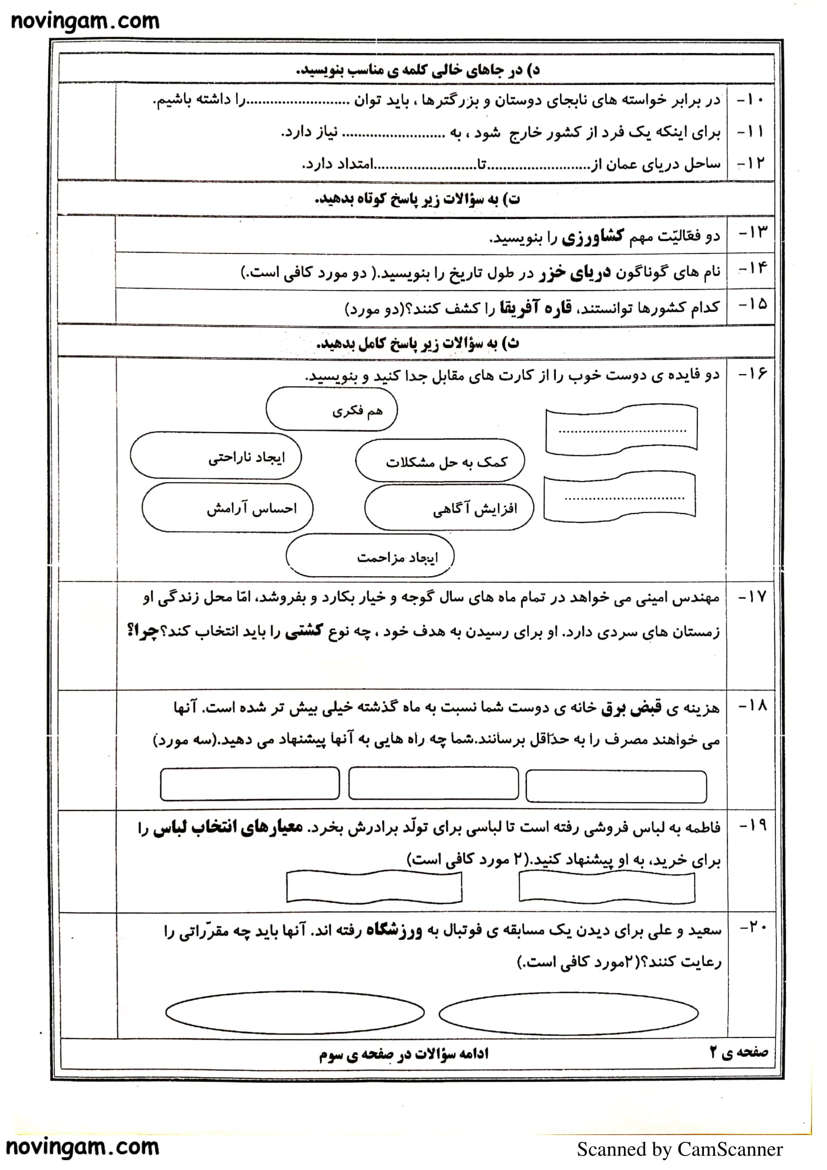 novingam.com
د) در جاهای خالی کلمه ی مناسب بنویسید.
۱۰- در برابر خواسته های نابجای دوستان و بزرگترها ، باید توان ..........................را داشته باشیم.
۱۱- برای اینکه یک فرد از کشور خارج شود ، به .......................... نیاز دارد.
۱۲- ساحل دریای عمان از..........................تا..........................امتداد دارد.
ت) به سؤالات زیر پاسخ کوتاه بدهید.
۱۳- دو فعّالیّت مهم کشاورزی را بنویسید.
۱۴- نام های گوناگون دریای خزر در طول تاریخ را بنویسید.( دو مورد کافی است.)
۱۵- کدام کشورها توانستند، قاره آفریقا را کشف کنند؟(دو مورد)
ث) به سؤالات زیر پاسخ کامل بدهید.
۱۶- دو فایده ی دوست خوب را از کارت های مقابل جدا کنید و بنویسید.
هم فکری
................................
کمک به حل مشکلات
ایجاد ناراحتی
..............................
افزایش آگاهی
احساس آرامش
ایجاد مزاحمت
۱۷- مهندس امینی می خواهد در تمام ماه های سال گوجه و خیار بکارد و بفروشد، امّا محل زندگی او
زمستان های سردی دارد. او برای رسیدن به هدف خود ، چه نوع کشتی را باید انتخاب کند؟چرا؟
۱۸- هزینه ی قبض برق خانه ی دوست شما نسبت به ماه گذشته خیلی بیش تر شده است. آنها
می خواهند مصرف را به حدّاقل برسانند.شما چه راه هایی به آنها پیشنهاد می دهید.(سه مورد)
۱۹- فاطمه به لباس فروشی رفته است تا لباسی برای تولّد برادرش بخرد. معیارهای انتخاب لباس را
برای خرید، به او پیشنهاد کنید.(۲ مورد کافی است)
۲۰- سعید و علی برای دیدن یک مسابقه ی فوتبال به ورزشگاه رفته اند. آنها باید چه مقرّراتی را
رعایت کنند؟(۲مورد کافی است.)
صفحه ی ۲
ادامه سؤالات در صفحه ی سوم
novingam.com
Scanned by CamScanner